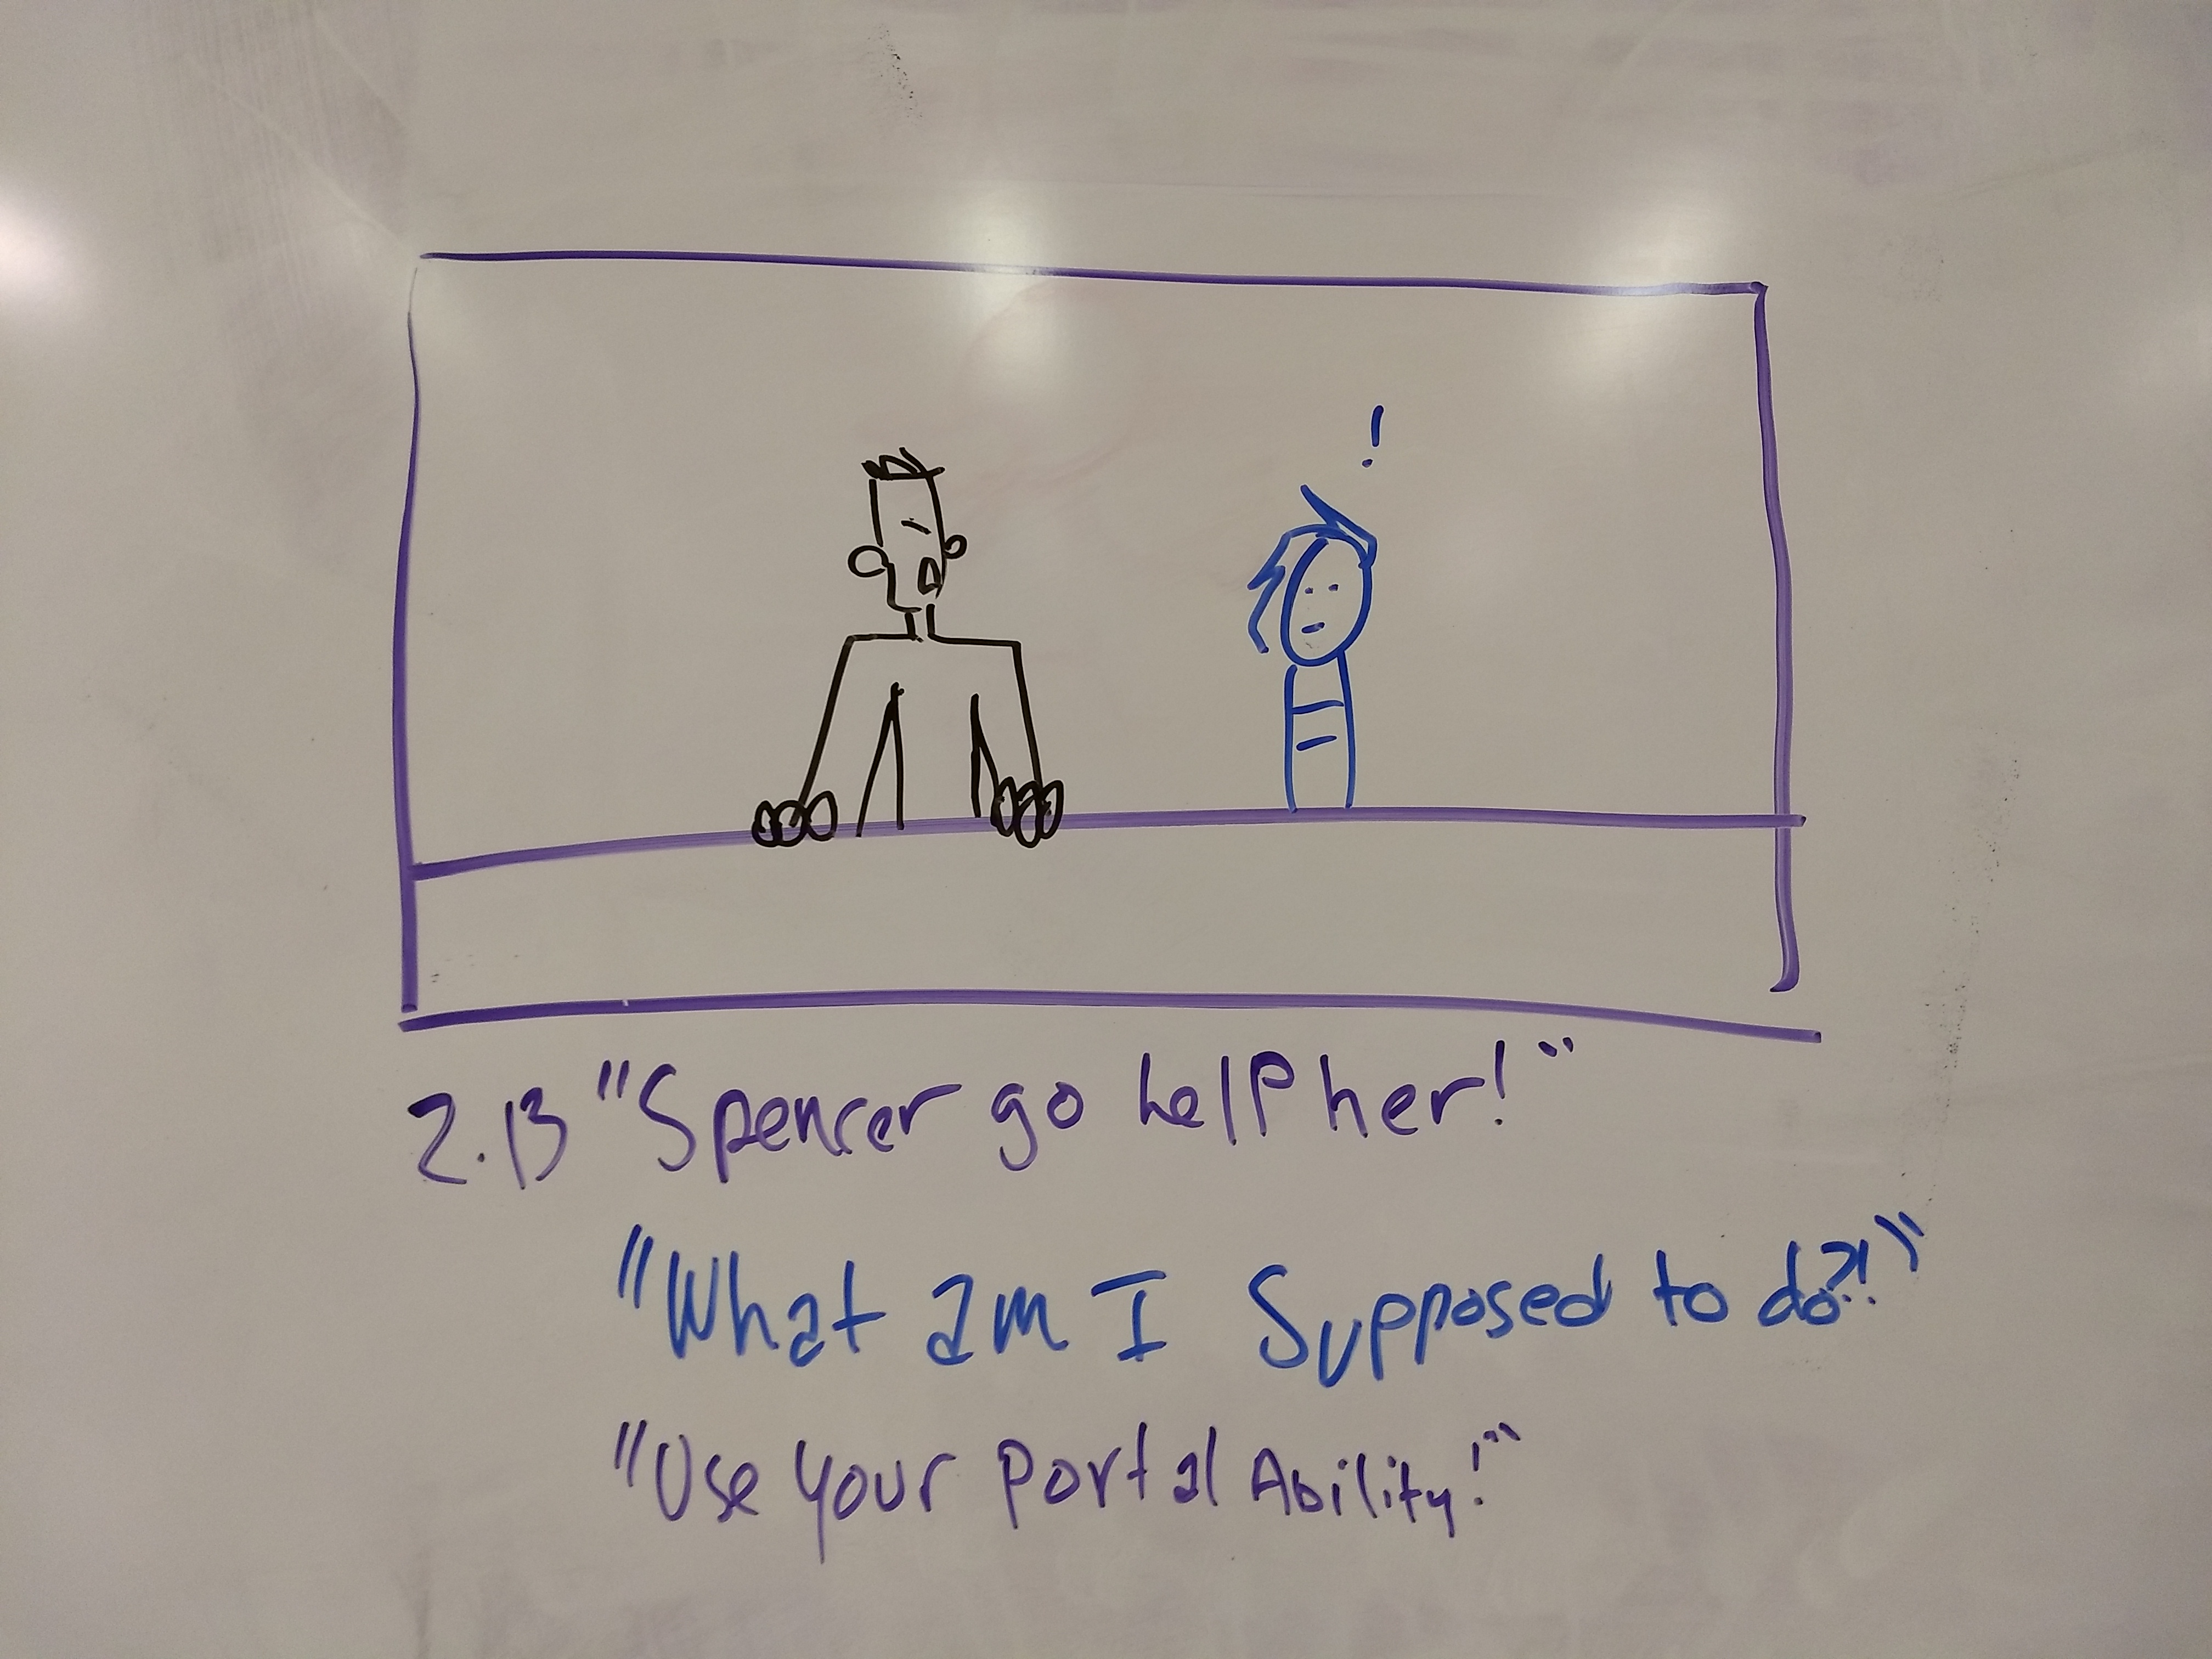 !
2.13 "Spencer go help her!"
"What am I Supposed to do?!"
"Use your portal Ability!"